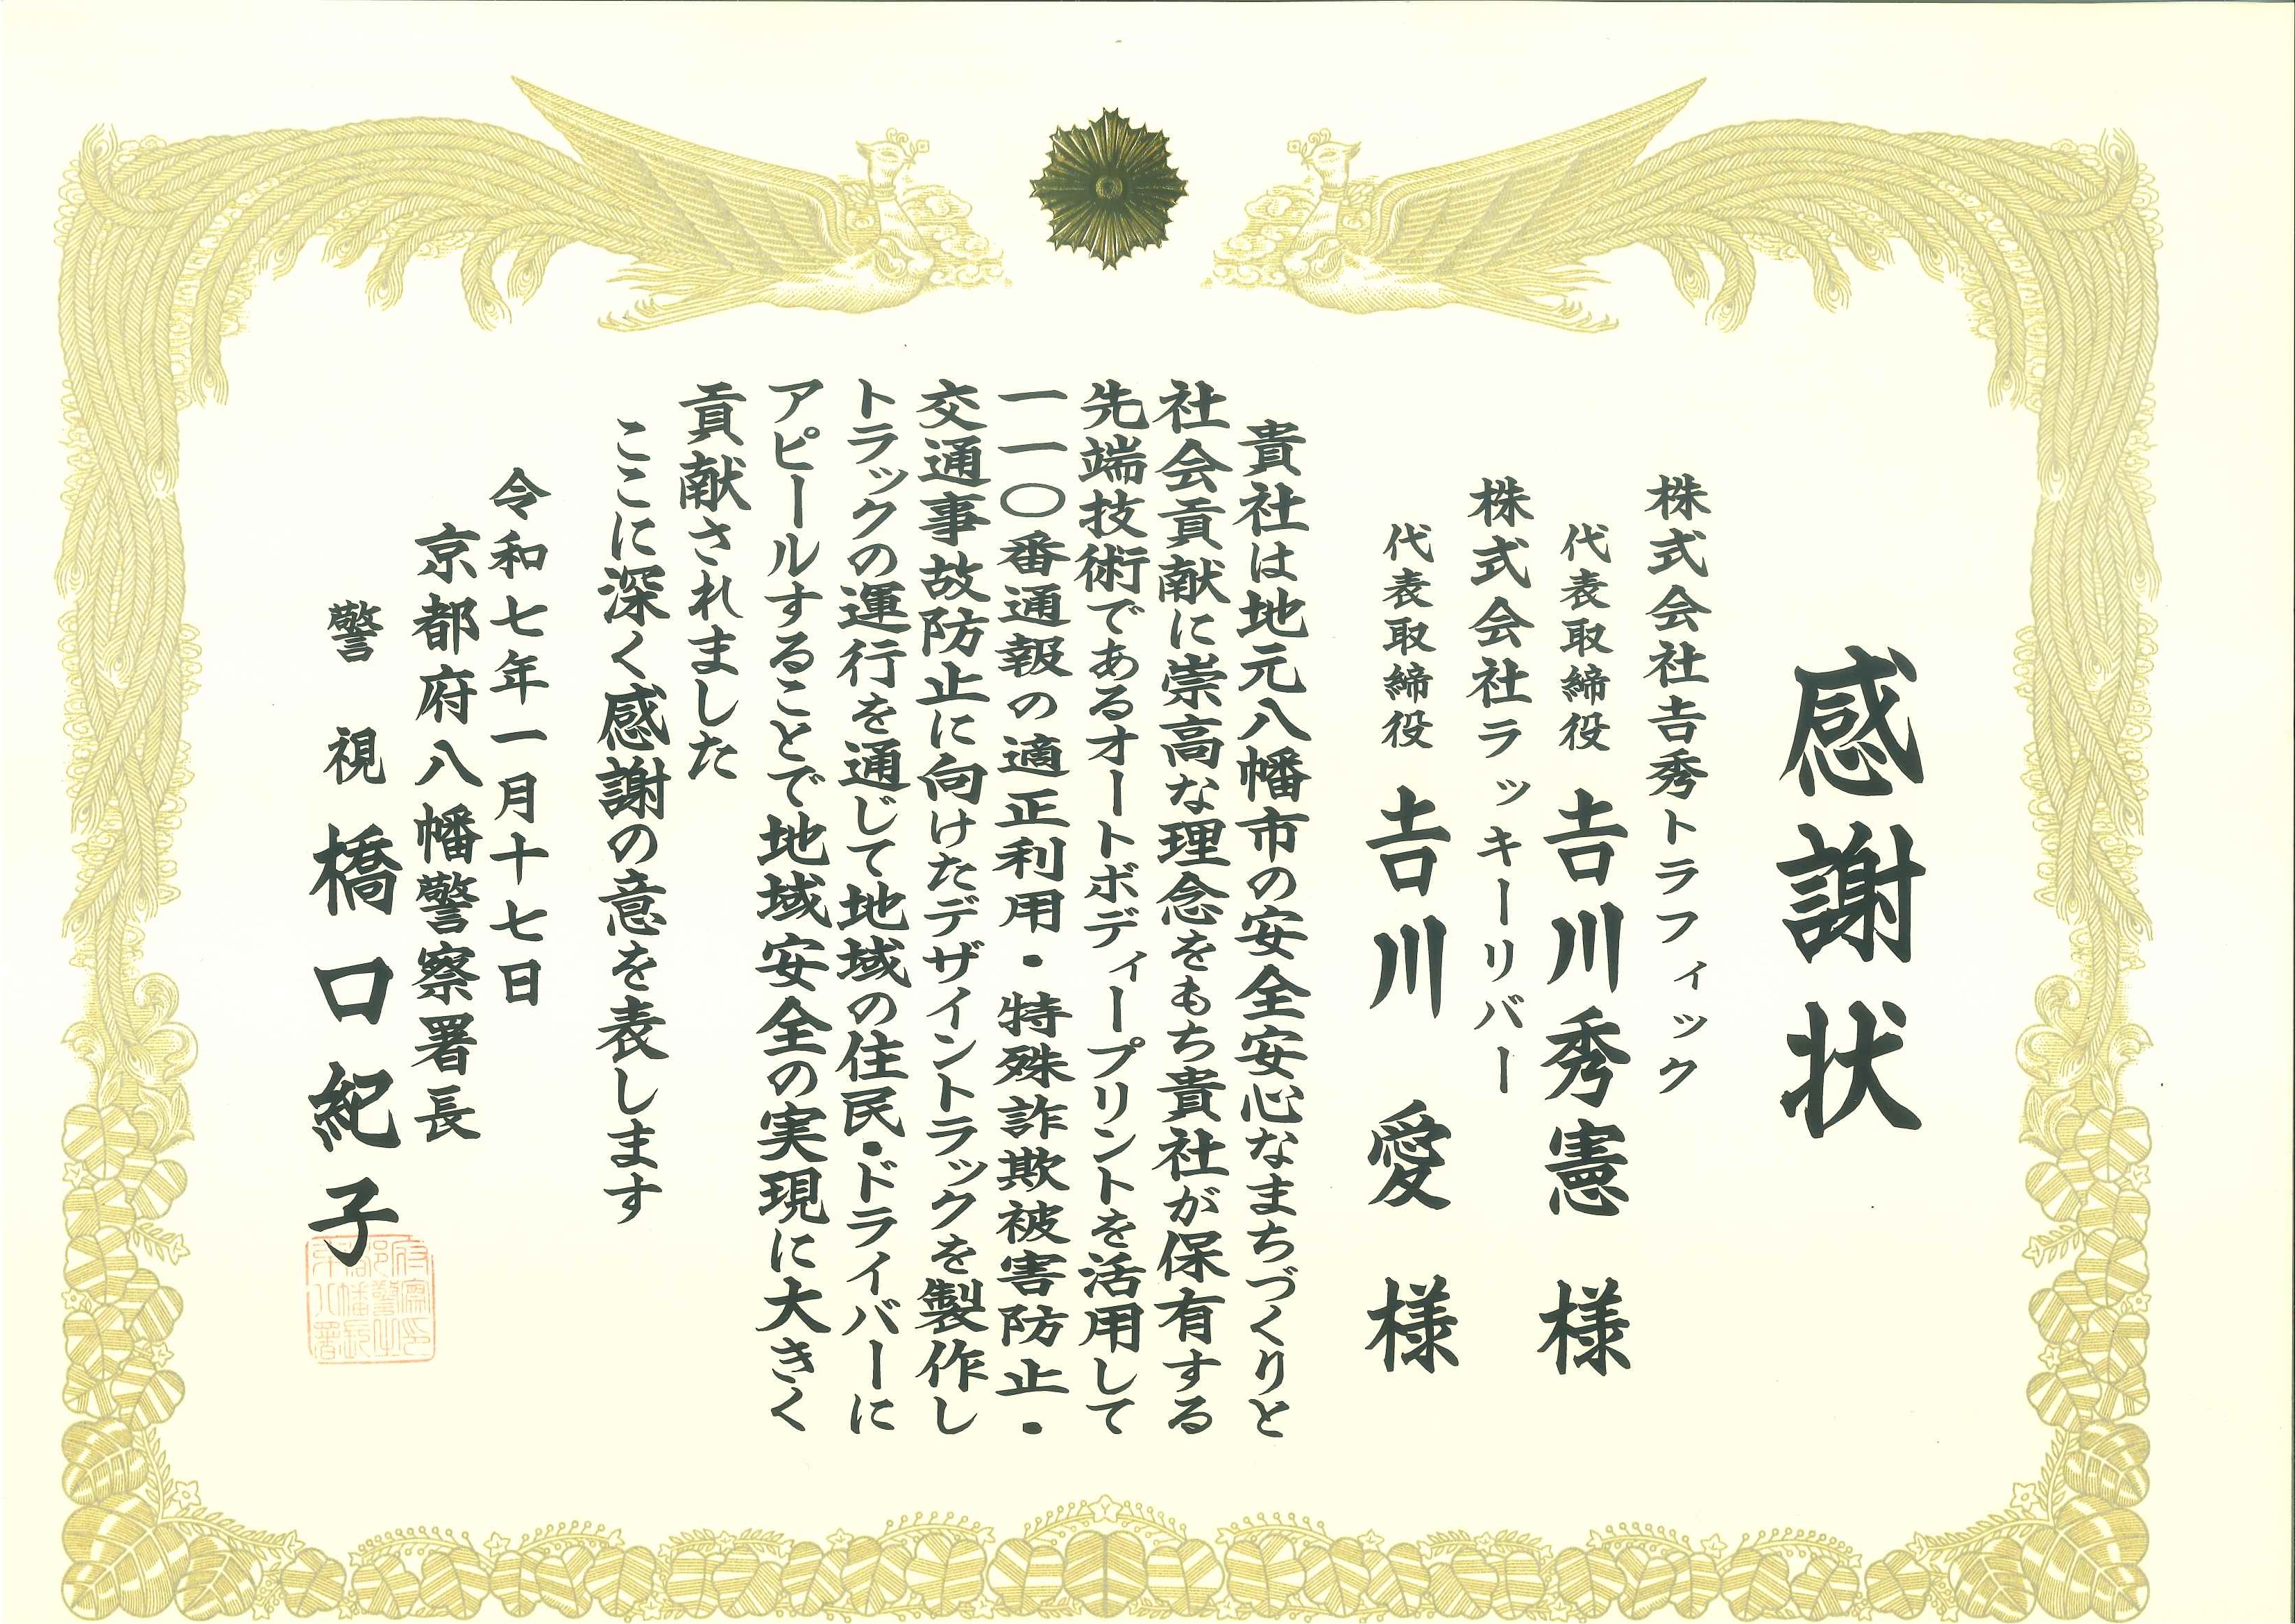 感謝状
株式会社𠮷秀トラフィック
代表取締役 𠮷川秀憲 様
株式会社ラッキーリバー
代表取締役 𠮷川 愛 様
貴社は地元八幡市の安全安心なまちづくりと
社会貢献に崇高な理念をもち貴社が保有する
先端技術であるオートボディープリントを活用して
一一〇番通報の適正利用・特殊詐欺被害防止・
交通事故防止に向けたデザイントラックを製作し
トラックの運行を通じて地域の住民・ドライバーに
アピールすることで地域安全の実現に大きく
貢献されました
ここに深く感謝の意を表します
令和七年一月十七日
京都府八幡警察署長
警視 橋口紀子